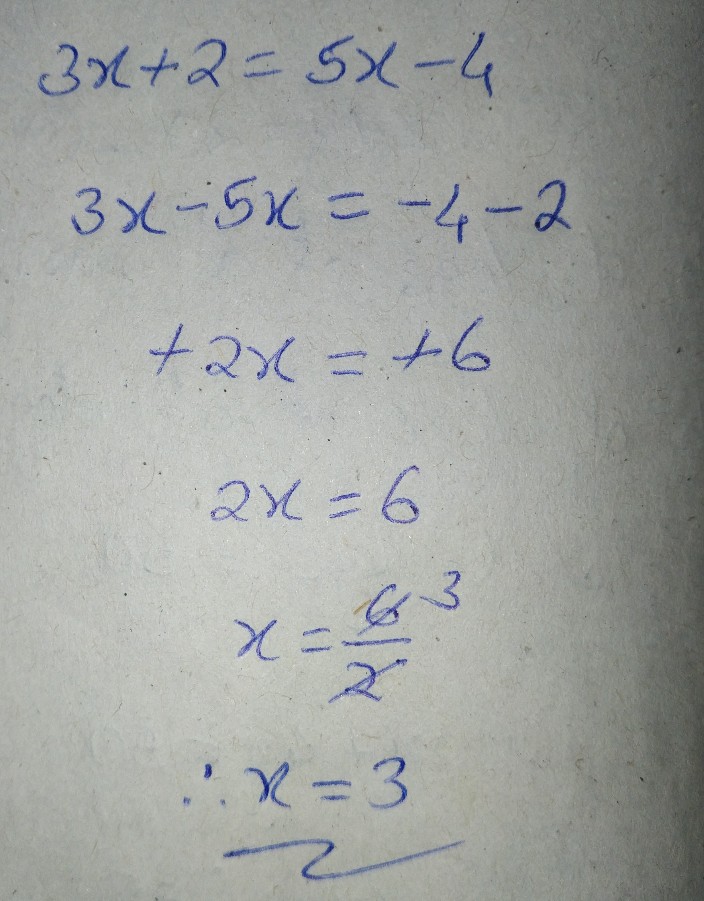 3x+2=5x-4
3x-5x=-4-2
+2x=+6
2x=6
x=6/2 3
∴x=3